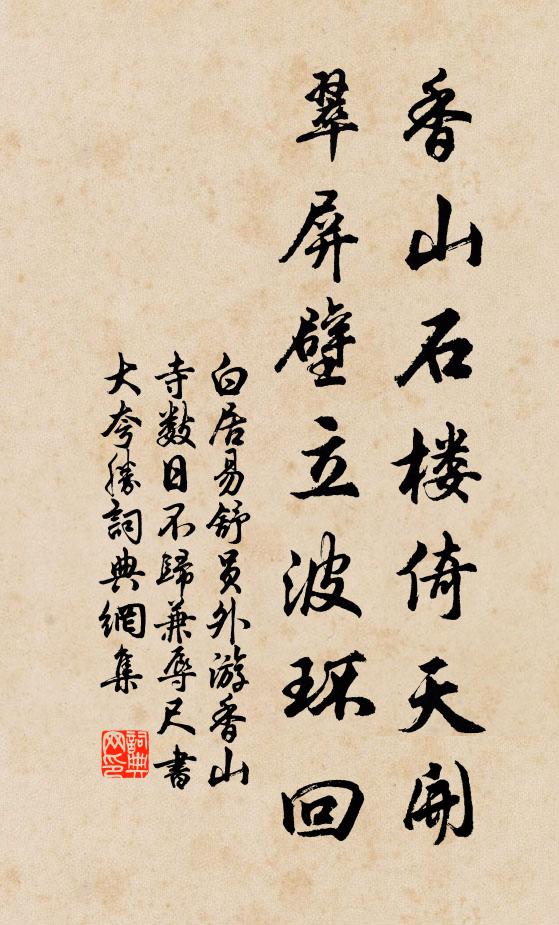 香山石楼倚天开
翠屏壁立波环回
白居易舒员外游香山
寺数日不歸兼辱尺書
大夸勝詞典網集
詞典
网印